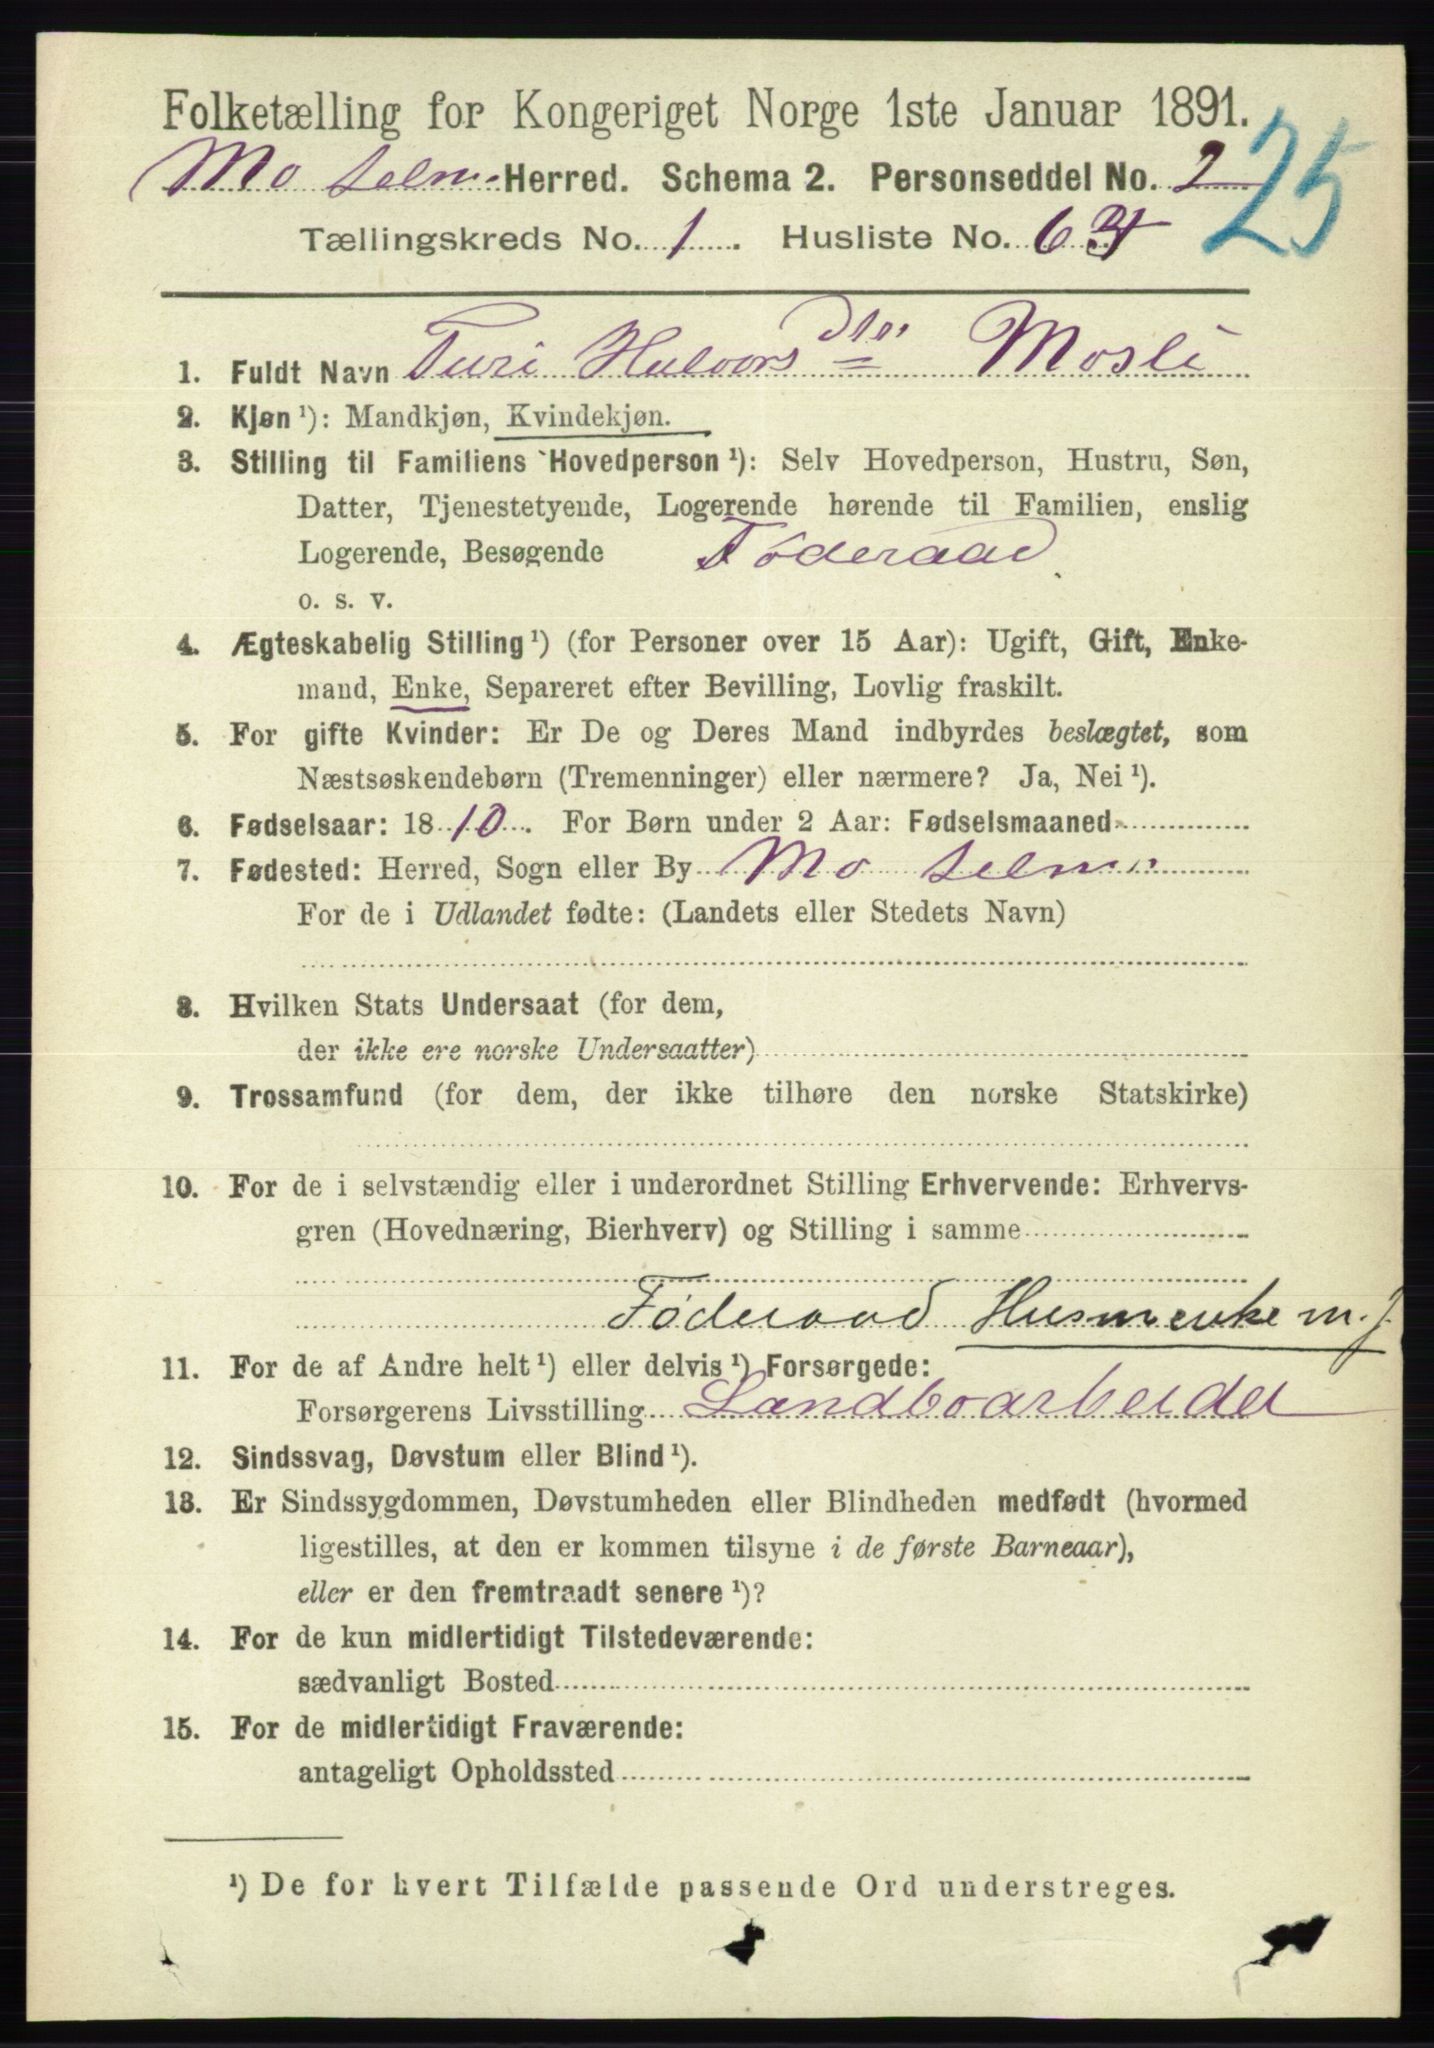 Folketælling for Kongeriget Norge 1ste Januar 1891.
25
Mo Herred. Schema 2. Personseddel No. 2
Tællingskreds No. 1. Husliste No. 6
1. Fuldt Navn Turi Halvorsdtr Mosli
2. Kjøn ¹): Mandkjøn, Kvindekjøn.
3. Stilling til Familiens Hovedperson ¹): Selv Hovedperson, Hustru, Søn,
Datter, Tjenestetyende, Logerende hørende til Familien, enslig
Logerende, Besøgende Føderaad
o. s. v.
4. Ægteskabelig Stilling ¹) (for Personer over 15 Aar): Ugift, Gift, Enke-
mand, Enke, Separeret efter Bevilling, Lovlig fraskilt.
5. For gifte Kvinder: Er De og Deres Mand indbyrdes beslægtet, som
Næstsøskendebørn (Tremenninger) eller nærmere? Ja, Nei ¹).
6. Fødselsaar: 1810. For Børn under 2 Aar: Fødselsmaaned
7. Fødested: Herred, Sogn eller By Mo
For de i Udlandet fødte: (Landets eller Stedets Navn)
8. Hvilken Stats Undersaat (for dem,
der ikke ere norske Undersaatter)
9. Trossamfund (for dem, der ikke tilhøre den norske Statskirke)
10. For de i selvstændig eller i underordnet Stilling Erhvervende: Erhvervs-
gren (Hovednæring, Bierhverv) og Stilling i samme
Føderaad Husmenke m. j.
11. For de af Andre helt ¹) eller delvis ¹) Forsørgede:
Forsørgerens Livsstilling Landboarbeider
12. Sindssvag, Døvstum eller Blind ¹).
13. Er Sindssygdommen, Døvstumheden eller Blindheden medfødt (hvormed
ligestilles, at den er kommen tilsyne i de første Barneaar),
eller er den fremtraadt senere ¹)?
14. For de kun midlertidigt Tilstedeværende:
sædvanligt Bosted
15. For de midlertidigt Fraværende:
antageligt Opholdssted
¹) De for hvert Tilfælde passende Ord understreges.